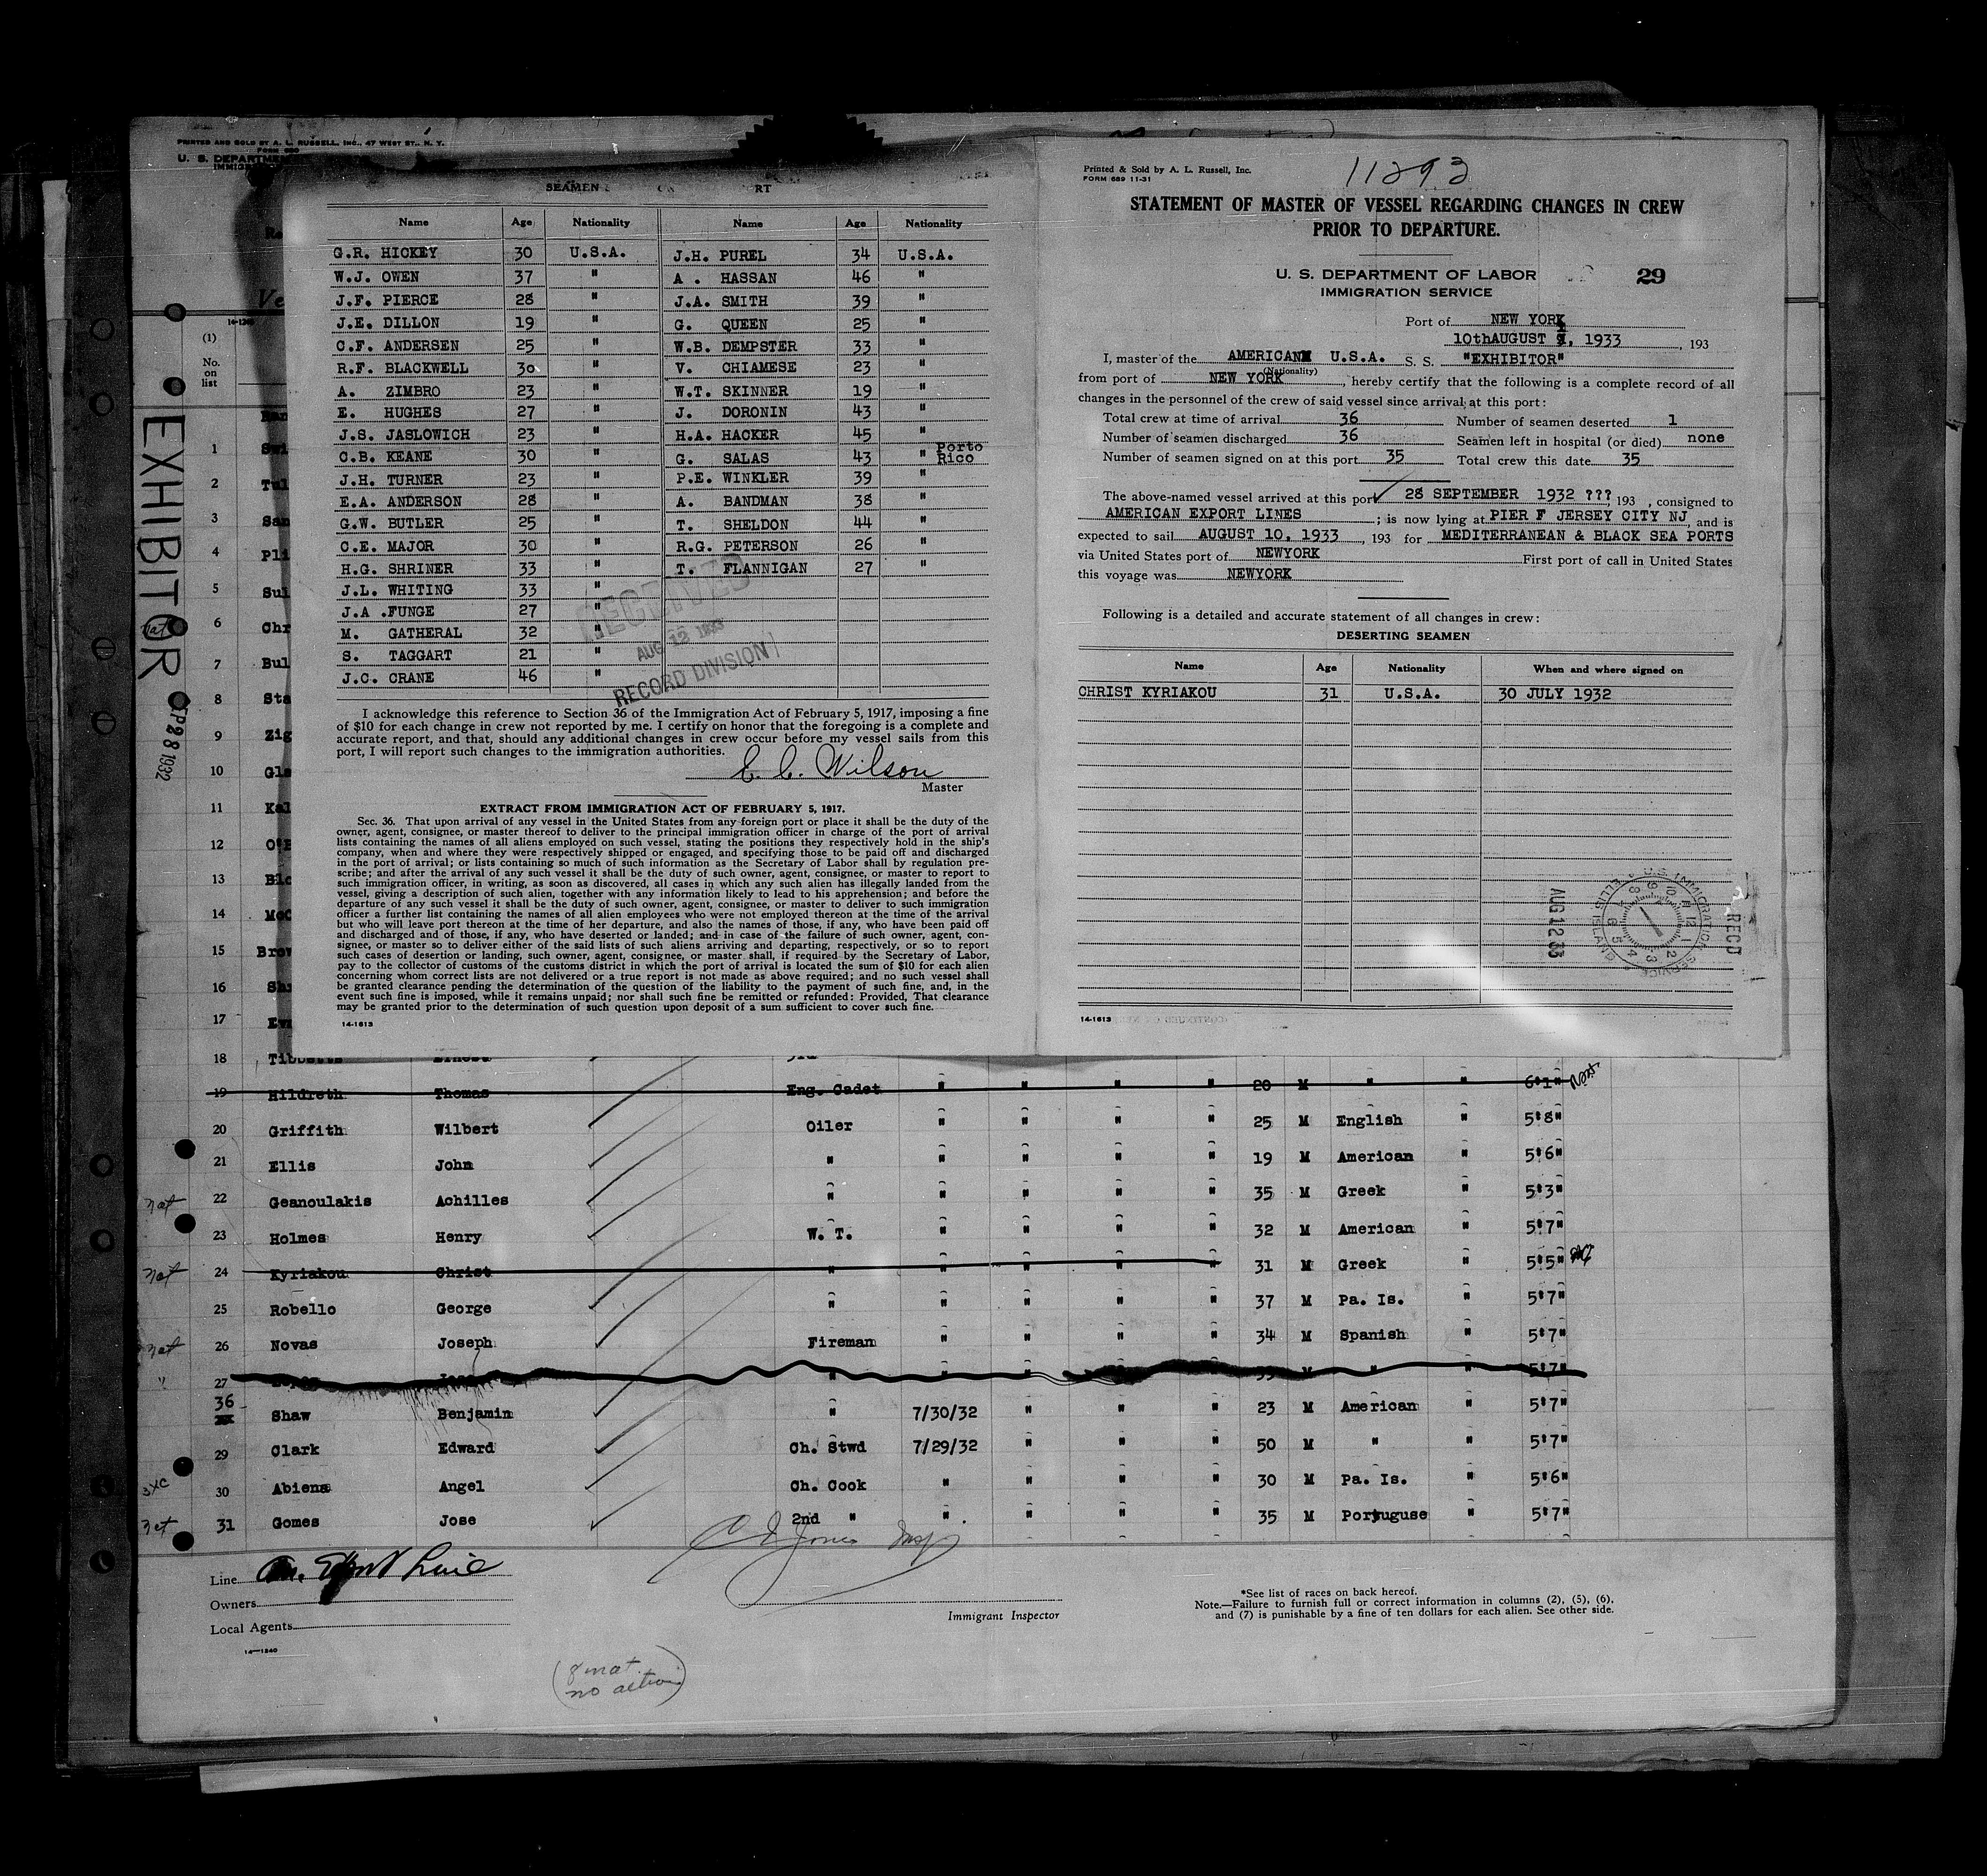 PRINTED AND SOLD BY A. L. RUSSELL, INC., 47 WEST ST., N. Y.
FORM 680
U. S. DEPARTME
IMMIG
(1)
No.
on
list
EXHIBITOR
SEP 28 1932
SEAMEN RT
Name Age Nationality Name Age Nationality
G.R. HICKEY 30 U.S.A. J.H. PUREL 34 U.S.A.
W.J. OWEN 37 " A . HASSAN 46 "
J.F. PIERCE 28 " J.A. SMITH 39 "
J.E. DILLON 19 " G. QUEEN 25 "
C.F. ANDERSEN 25 " W.B. DEMPSTER 33 "
R.F. BLACKWELL 30 " V. CHIAMESE 23 "
A. ZIMBRO 23 " W.T. SKINNER 19 "
E. HUGHES 27 " J. DORONIN 43 "
J.S. JASLOWICH 23 " H.A. HACKER 45 "
C.B. KEANE 30 " G. SALAS 43 " Porto Rico
J.H. TURNER 23 " P.E. WINKLER 39 "
E.A. ANDERSON 28 " A. BANDMAN 38 "
G.W. BUTLER 25 " T. SHELDON 44 "
C.E. MAJOR 30 " R.G. PETERSON 26 "
H.G. SHRINER 33 " T. FLANNIGAN 27 "
J.L. WHITING 33 "
J.A .FUNGE 27 "
M. GATHERAL 32 "
S. TAGGART 21 "
J.C. CRANE 46 "
RECEIVED
AUG 12 1933
RECORD DIVISION
I acknowledge this reference to Section 36 of the Immigration Act of February 5, 1917, imposing a fine
of $10 for each change in crew not reported by me. I certify on honor that the foregoing is a complete and
accurate report, and that, should any additional changes in crew occur before my vessel sails from this
port, I will report such changes to the immigration authorities.
E. C. Wilson
Master
EXTRACT FROM IMMIGRATION ACT OF FEBRUARY 5, 1917.
Sec. 36. That upon arrival of any vessel in the United States from any foreign port or place it shall be the duty of the
owner, agent, consignee, or master thereof to deliver to the principal immigration officer in charge of the port of arrival
lists containing the names of all aliens employed on such vessel, stating the positions they respectively hold in the ship's
company, when and where they were respectively shipped or engaged, and specifying those to be paid off and discharged
in the port of arrival; or lists containing so much of such information as the Secretary of Labor shall by regulation pre-
scribe; and after the arrival of any such vessel it shall be the duty of such owner, agent, consignee, or master to report to
such immigration officer, in writing, as soon as discovered, all cases in which any such alien has illegally landed from the
vessel, giving a description of such alien, together with any information likely to lead to his apprehension; and before the
departure of any such vessel it shall be the duty of such owner, agent, consignee, or master to deliver to such immigration
officer a further list containing the names of all alien employees who were not employed thereon at the time of the arrival
but who will leave port thereon at the time of her departure, and also the names of those, if any, who have been paid off
and discharged and of those, if any, who have deserted or landed; and in case of the failure of such owner, agent, con-
signee, or master so to deliver either of the said lists of such aliens arriving and departing, respectively, or so to report
such cases of desertion or landing, such owner, agent, consignee, or master shall, if required by the Secretary of Labor,
pay to the collector of customs of the customs district in which the port of arrival is located the sum of $10 for each alien
concerning whom correct lists are not delivered or a true report is not made as above required; and no such vessel shall
be granted clearance pending the determination of the question of the liability to the payment of such fine, and, in the
event such fine is imposed, while it remains unpaid; nor shall such fine be remitted or refunded: Provided, That clearance
may be granted prior to the determination of such question upon deposit of a sum sufficient to cover such fine.
14-1613
Printed & Sold by A. L. Russell, Inc.
FORM 689 11-31
11293
STATEMENT OF MASTER OF VESSEL REGARDING CHANGES IN CREW
PRIOR TO DEPARTURE.
U. S. DEPARTMENT OF LABOR
IMMIGRATION SERVICE
29
Port of NEW YORK
10thAUGUST 9, 1933, 193
I, master of the AMERICAN U.S.A. S. S. "EXHIBITOR"
(Nationality)
from port of NEW YORK, hereby certify that the following is a complete record of all
changes in the personnel of the crew of said vessel since arrival at this port:
Total crew at time of arrival 36 Number of seamen deserted 1
Number of seamen discharged 36 Seamen left in hospital (or died) none
Number of seamen signed on at this port 35 Total crew this date 35
The above-named vessel arrived at this port 28 SEPTEMBER 1932 ??? 193 , consigned to
AMERICAN EXPORT LINES ; is now lying at PIER F JERSEY CITY NJ, and is
expected to sail AUGUST 10, 1933, 193 for MEDITERRANEAN & BLACK SEA PORTS
via United States port of NEWYORK First port of call in United States
this voyage was NEWYORK
Following is a detailed and accurate statement of all changes in crew:
DESERTING SEAMEN
Name Age Nationality When and where signed on
CHRIST KYRIAKOU 31 U.S.A. 30 JULY 1932
U.S. IMMIGRATION SERVICE
ELLIS ISLAND
AUG 12 33
REC'D
14-1613
1 Swi
2 Tul
3 San
4 Pli
5 Sui
nat 6 Chr
7 Bul
8 Sta
9 Zig
10 Gla
11 Kal
12 O'B
13 Blo
14 McC
15 Brow
16 Sh
17 Ev
18 Tibbetts Ernest 3rd
19 Hildreth Thomas Eng. Cadet " " " " 20 M " " 6'1"
20 Griffith Wilbert Oiler " " " " 25 M English " 5'8"
21 Ellis John " " " " " 19 M American " 5'6"
nat 22 Geanoulakis Achilles " " " " " 35 M Greek " 5'3"
23 Holmes Henry W. T. " " " " 32 M American " 5'7"
nat 24 Kyriakou Christ " " " " " 31 M Greek " 5'5"
25 Robello George " " " " " 37 M Pa. Is. " 5'7"
nat 26 Novas Joseph Fireman " " " " 34 M Spanish " 5'7"
" 27 " " 5'7"
36 Shaw Benjamin " 7/30/32 " " " 23 M American " 5'7"
29 Clark Edward Ch. Stwd 7/29/32 " " " 50 M " " 5'7"
30 Abiena Angel Ch. Cook " " " " 30 M Pa. Is. " 5'6"
31 Gomes Jose 2nd " " " " " 35 M Portuguse " 5'7"
Line Am. Export Line
Owners
Local Agents
14-1240
Jones Insp
Immigrant Inspector
*See list of races on back hereof.
Note.—Failure to furnish full or correct information in columns (2), (5), (6),
and (7) is punishable by a fine of ten dollars for each alien. See other side.
(8 nat.
no action)